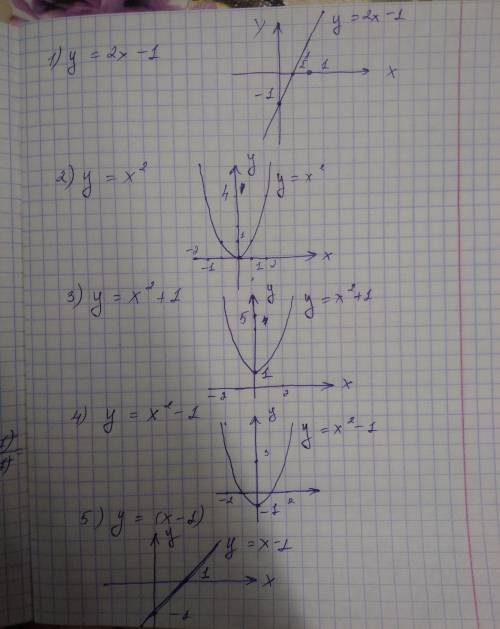 1) y = 2x - 1
y
y = 2x - 1
1
1
x
-1
2) y = x²
y
y = x²
4
1
-2
-1
1
2
x
3) y = x² + 1
y
y = x² + 1
5
1
-2
2
x
4) y = x² - 1
y
y = x² - 1
3
-2
2
-1
5) y = (x - 1)
y
y = x - 1
1
x
-1